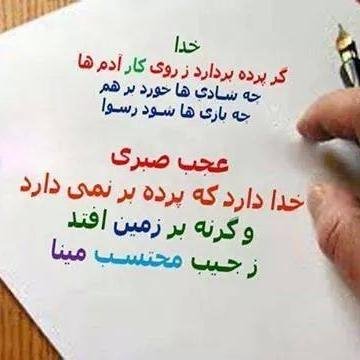 خدا
گر پرده بردارد ز روی کار آدم ها
چه شادی ها خورد بر هم
چه بازی ها شود رسوا
عجب صبری
خدا دارد که پرده بر نمی دارد
و گرنه بر زمین افتد
ز جیب محتسب مینا